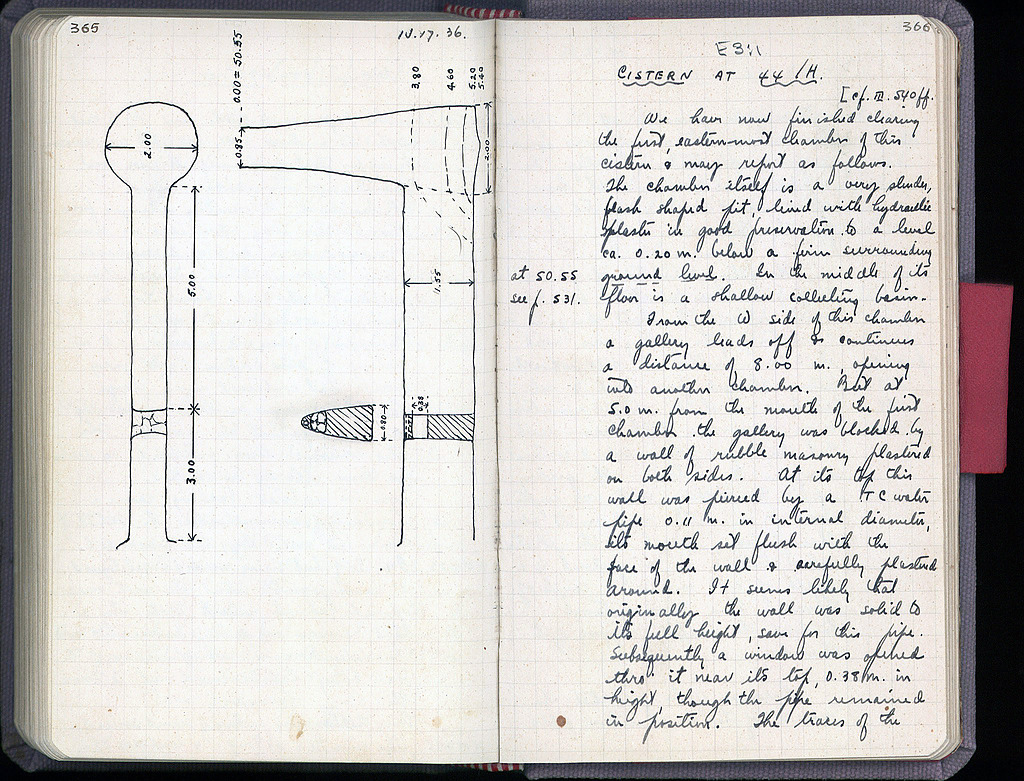 365
IV. 17. 36.
0.00 = 50.55
3.80
4.60
5.20
5.40
0.85
2.00
2.00
5.00
1.55
0.38
0.80
3.00
366
E 3:1
CISTERN AT 44/H.
[cf. III. 540ff.
We have now finished clearing
the first, eastern-most chamber of this
cistern & may report as follows.
The chamber itself is a very slender,
flask shaped pit, lined with hydraulic
plaster in good preservation to a level
ca. 0.20 m. below a firm surrounding
at 50.55
see p. 531.
ground level. In the middle of its
floor is a shallow collecting basin.
From the W side of this chamber
a gallery leads off & continues
a distance of 8.00 m., opening
into another chamber. But at
5.0 m. from the mouth of the first
chamber the gallery was blocked by
a wall of rubble masonry plastered
on both sides. At its top this
wall was pierced by a TC water
pipe 0.11 m. in internal diameter,
its mouth set flush with the
face of the wall & carefully plastered
around. It seems likely that
originally the wall was solid to
its full height, save for this pipe.
Subsequently a window was opened
thro' it near its top, 0.38 m. in
height, though the pipe remained
in position. The traces of the